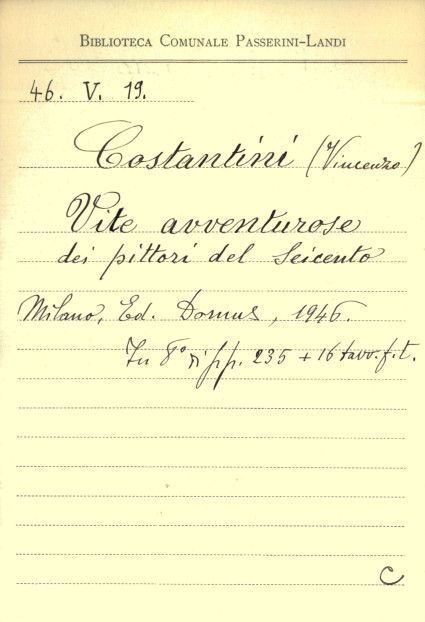 BIBLIOTECA COMUNALE PASSERINI-LANDI
46. V. 19.
Costantini (Vincenzo)
Vite avventurose
dei pittori del Seicento
Milano, Ed. Domus, 1946.
In 8° di pp. 235 + 16 tavv. f. t.
C